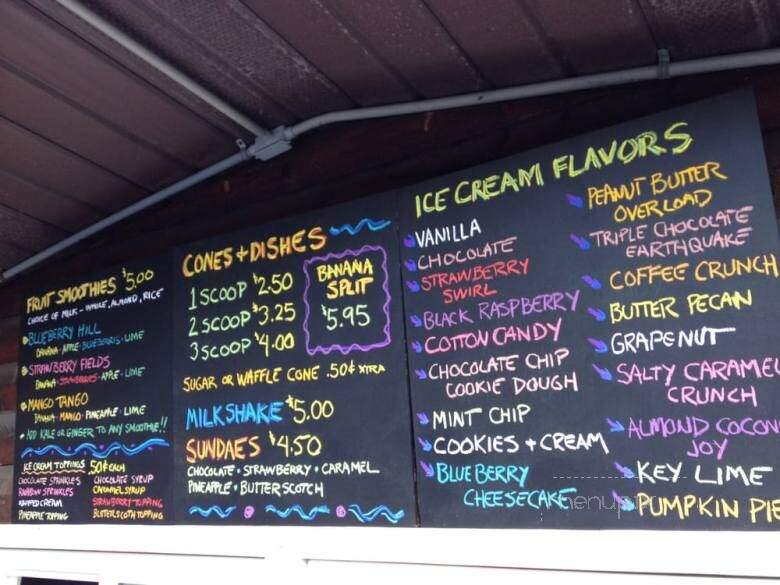 FRUIT SMOOTHIES $5.00
CHOICE OF MILK - WHOLE, ALMOND, RICE
BLUEBERRY HILL
BANANA · APPLE · BLUEBERRIES · LIME
STRAWBERRY FIELDS
BANANA · STRAWBERRIES · APPLE · LIME
MANGO TANGO
BANANA · MANGO · PINEAPPLE · LIME
ADD KALE OR GINGER TO ANY SMOOTHIE!!
ICE CREAM TOPPINGS 50¢ EACH
CHOCOLATE SPRINKLES
RAINBOW SPRINKLES
WHIPPED CREAM
PINEAPPLE TOPPING
CHOCOLATE SYRUP
CARAMEL SYRUP
STRAWBERRY TOPPING
BUTTERSCOTCH TOPPING
CONES + DISHES
1 SCOOP $2.50
2 SCOOP $3.25
3 SCOOP $4.00
BANANA
SPLIT
$5.95
SUGAR OR WAFFLE CONE .50¢ XTRA
MILKSHAKE $5.00
SUNDAES $4.50
CHOCOLATE · STRAWBERRY · CARAMEL
PINEAPPLE · BUTTERSCOTCH
ICE CREAM FLAVORS
VANILLA
CHOCOLATE
STRAWBERRY
SWIRL
BLACK RASPBERRY
COTTON CANDY
CHOCOLATE CHIP
COOKIE DOUGH
MINT CHIP
COOKIES + CREAM
BLUEBERRY
CHEESECAKE
PEANUT BUTTER
OVERLOAD
TRIPLE CHOCOLATE
EARTHQUAKE
COFFEE CRUNCH
BUTTER PECAN
GRAPENUT
SALTY CARAMEL
CRUNCH
ALMOND COCON
JOY
KEY LIME
PUMPKIN PIE